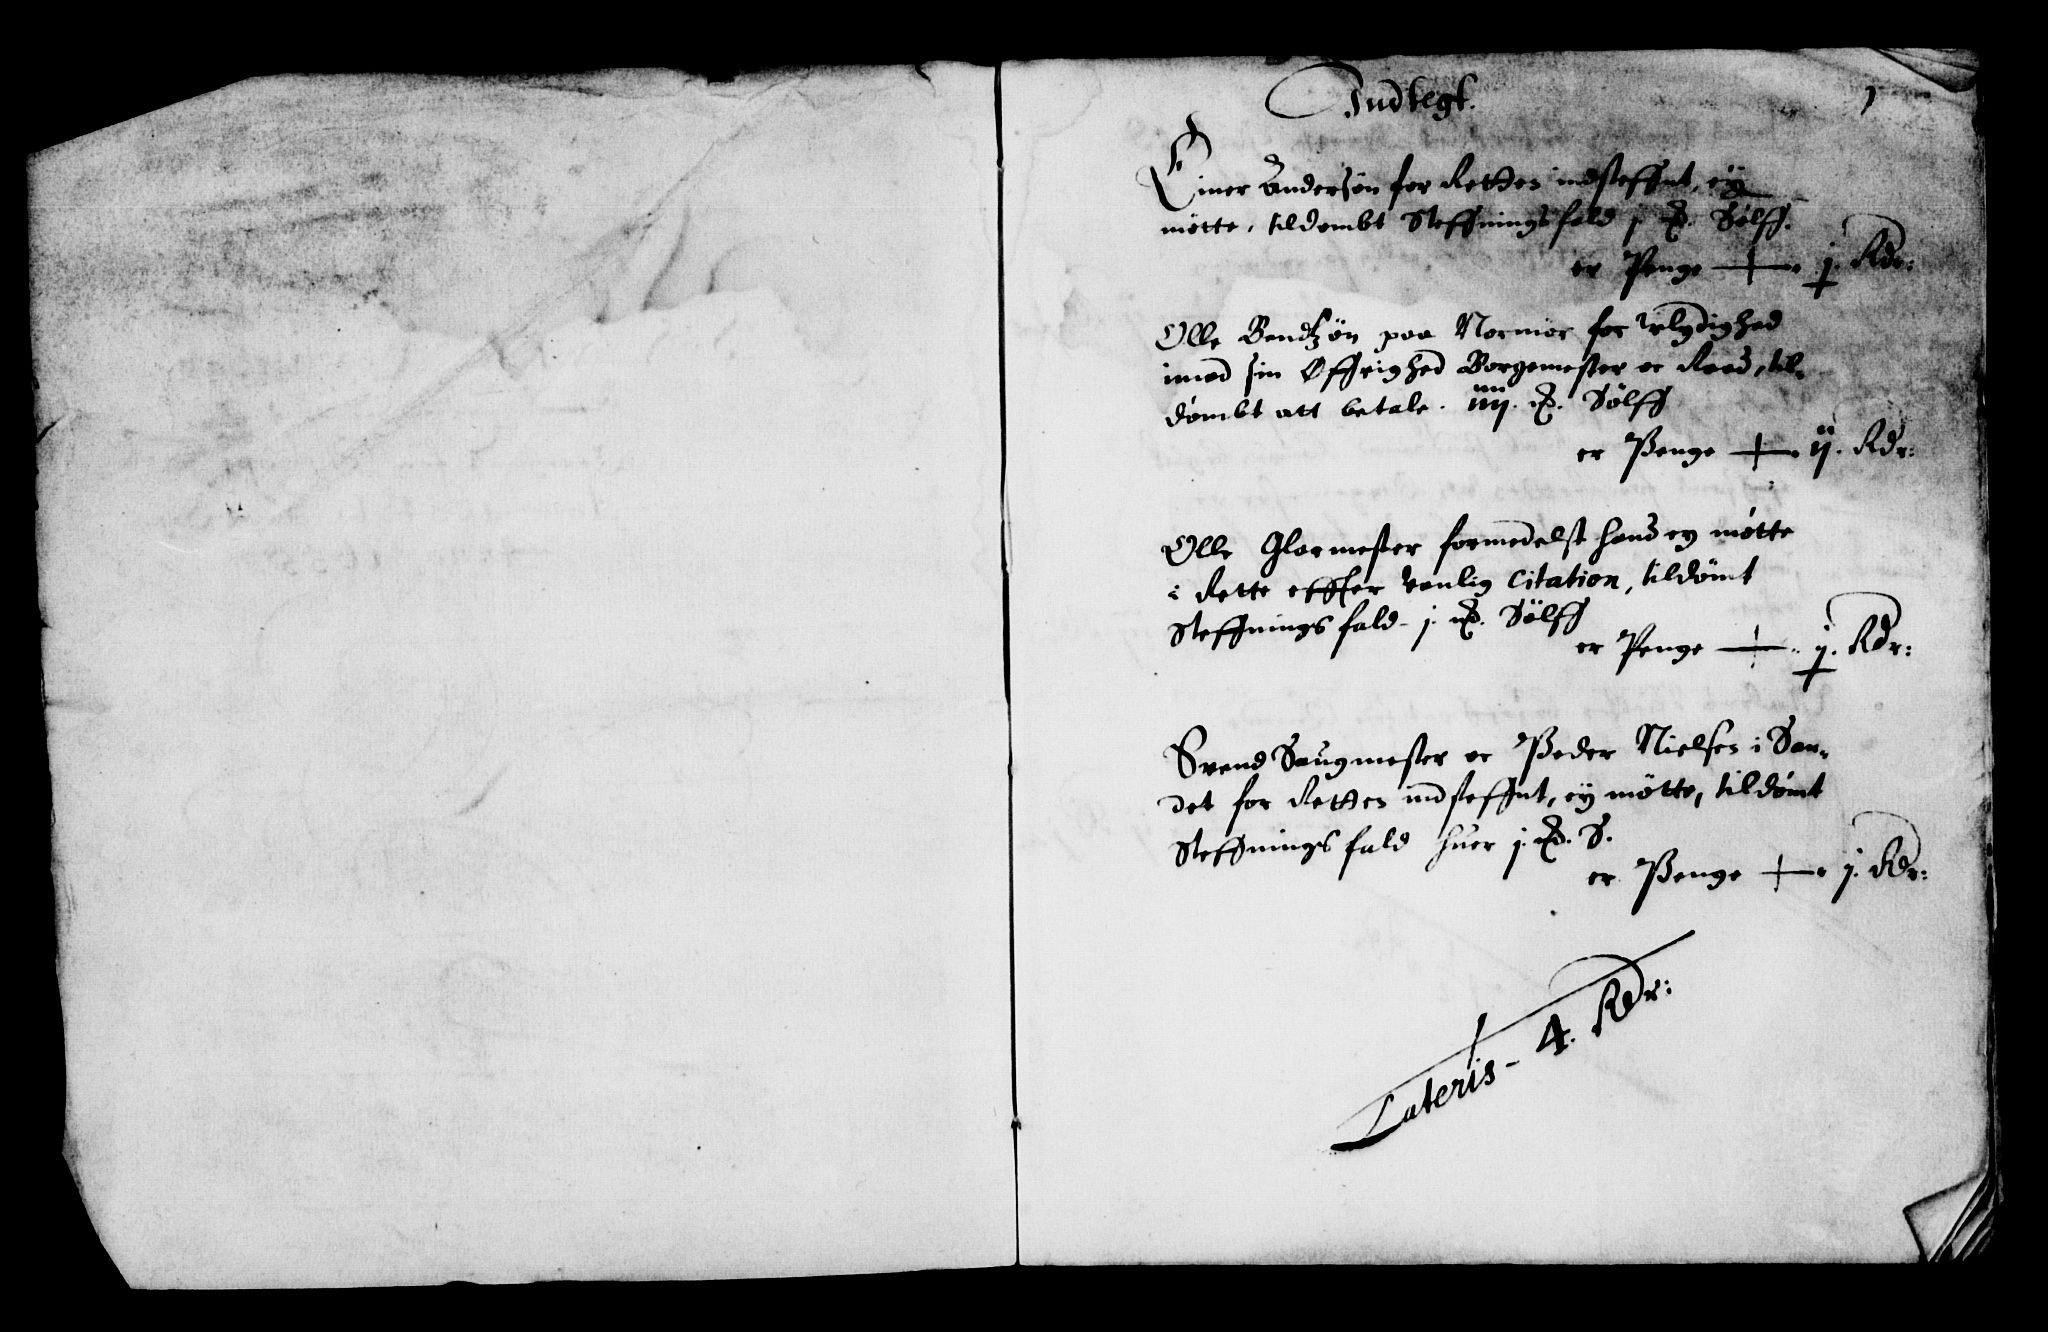 Indtegt.
1
Einer Andersøn for Retten indsteffnt, eÿ
møtte, tildømbt Steffnings fald j Sølff.
er Penge j. Rdr:
Olle Bendtzøn paa Normør for Vlydighed
imod sin Øffrighed Borgemester oc Raad, til-
dømbt att betale. iiij. Sølff
er Penge ij. Rdr:
Olle Glarmester formedelst hand ey møtte
i Rette effter Loulig Citation, tildømt
Steffnings fald j. Sølff
er Penge j. Rdr:
Svend Saugmester oc Peder Nielsen i San-
det for Retten indsteffnt, eÿ møtte, tildømt
Steffnings fald huer j. S.
er Penge j. Rdr:
Lateris - 4. Rdr: